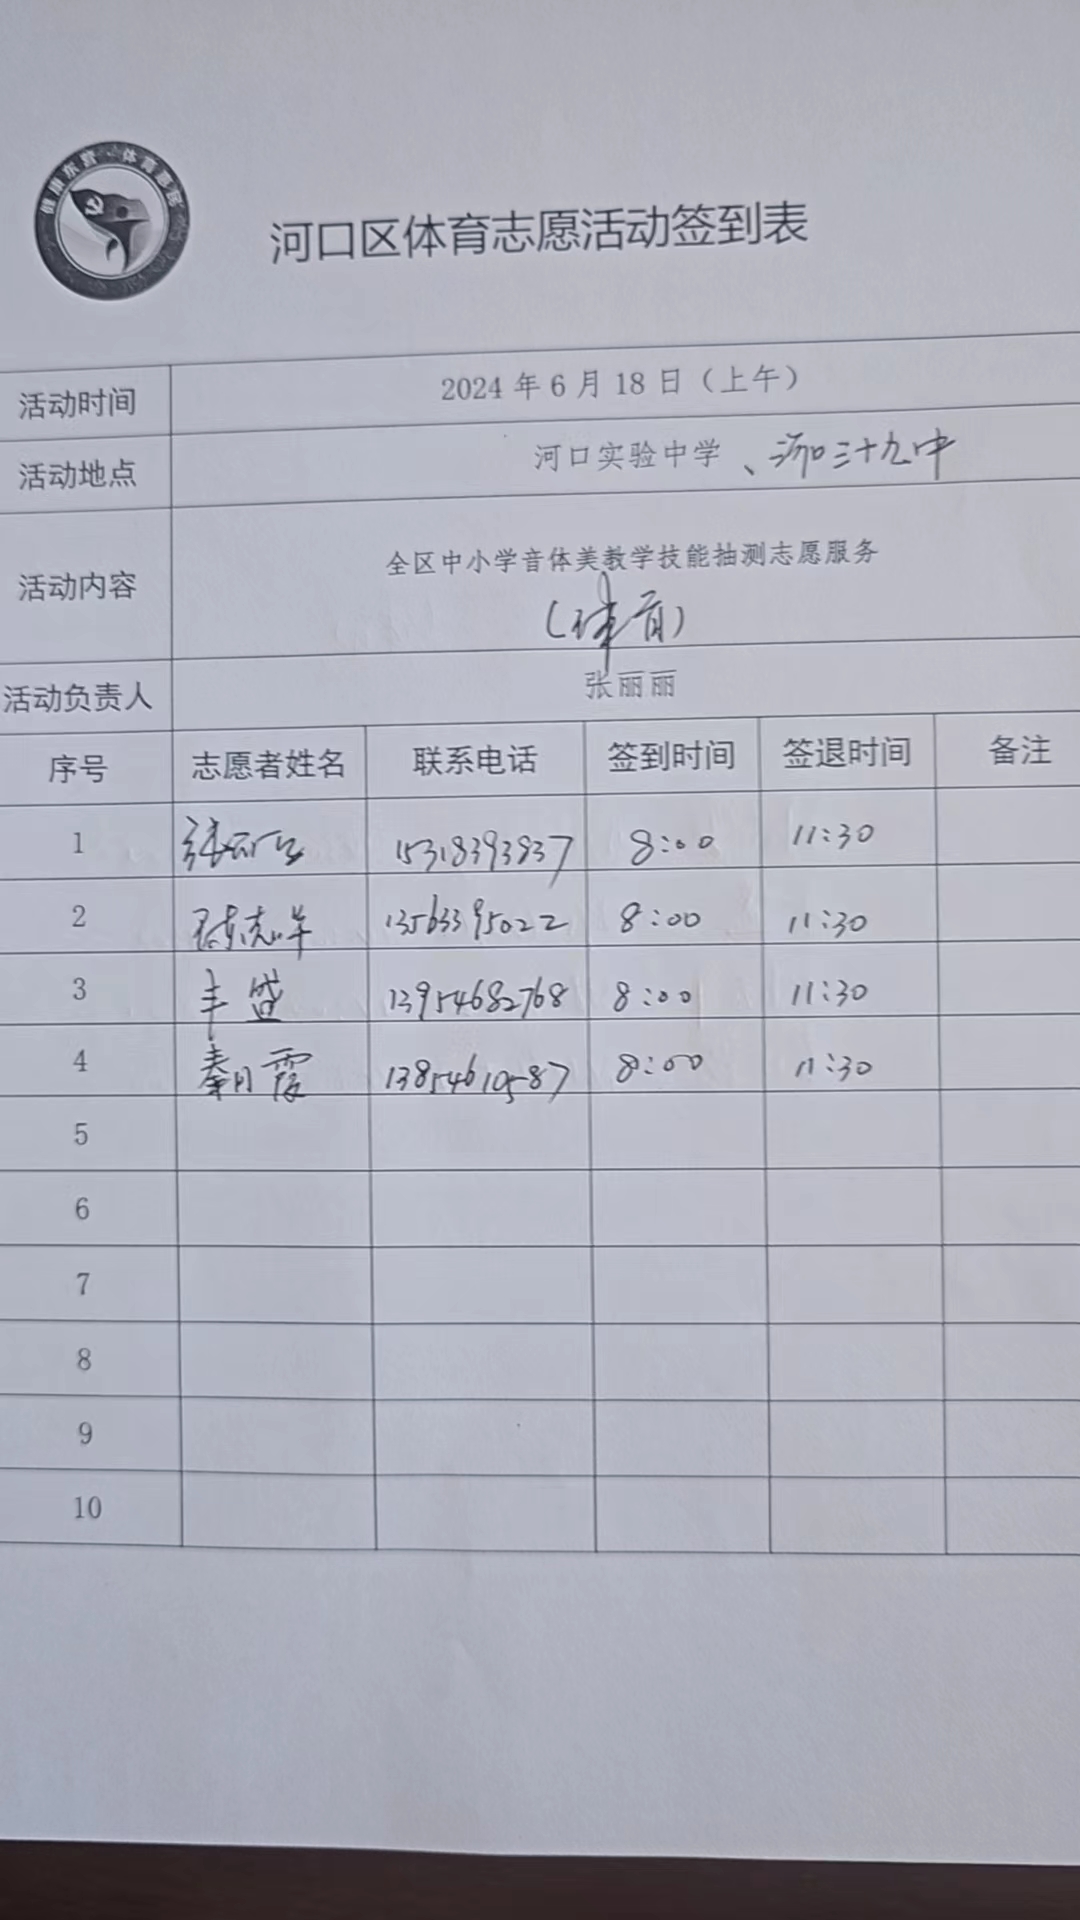 健康东营·体育惠民
河口区体育志愿活动签到表
活动时间 2024 年 6 月 18 日（上午）
活动地点 河口实验中学、河口三十九中
活动内容 全区中小学音体美教学技能抽测志愿服务
（体育）
活动负责人 张丽丽
序号 志愿者姓名 联系电话 签到时间 签退时间 备注
1 15318393937 8:00 11:30
2 陈志华 13563395022 8:00 11:30
3 丰盛 13954682768 8:00 11:30
4 秦月霞 13854610587 8:00 11:30
5
6
7
8
9
10